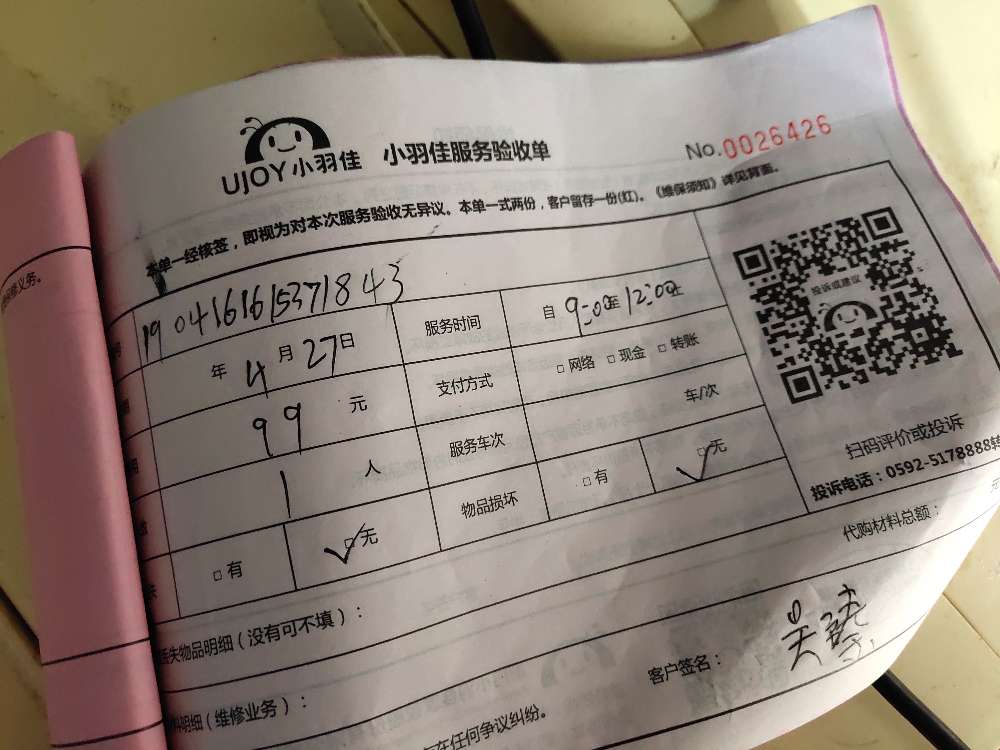 UJOY小羽佳 小羽佳服务验收单 No.0026426
本单一经核签，即视为对本次服务验收无异议。本单一式两份，客户留存一份(红)。《维保须知》详见背面。
19041616153718 43 服务时间 自 9:00至12:00止
年 4 月 27 日 支付方式 □网络 □现金 □转账
99 元 服务车次 车/次
1 人 物品损坏 □有 ☑无
□有 ☑无
投诉或建议
扫码评价或投诉
投诉电话：0592-5178888转
失物品明细（没有可不填）： 代购材料总额： 元
明细（维修业务）： 客户签名：
在任何争议纠纷。
修义务。